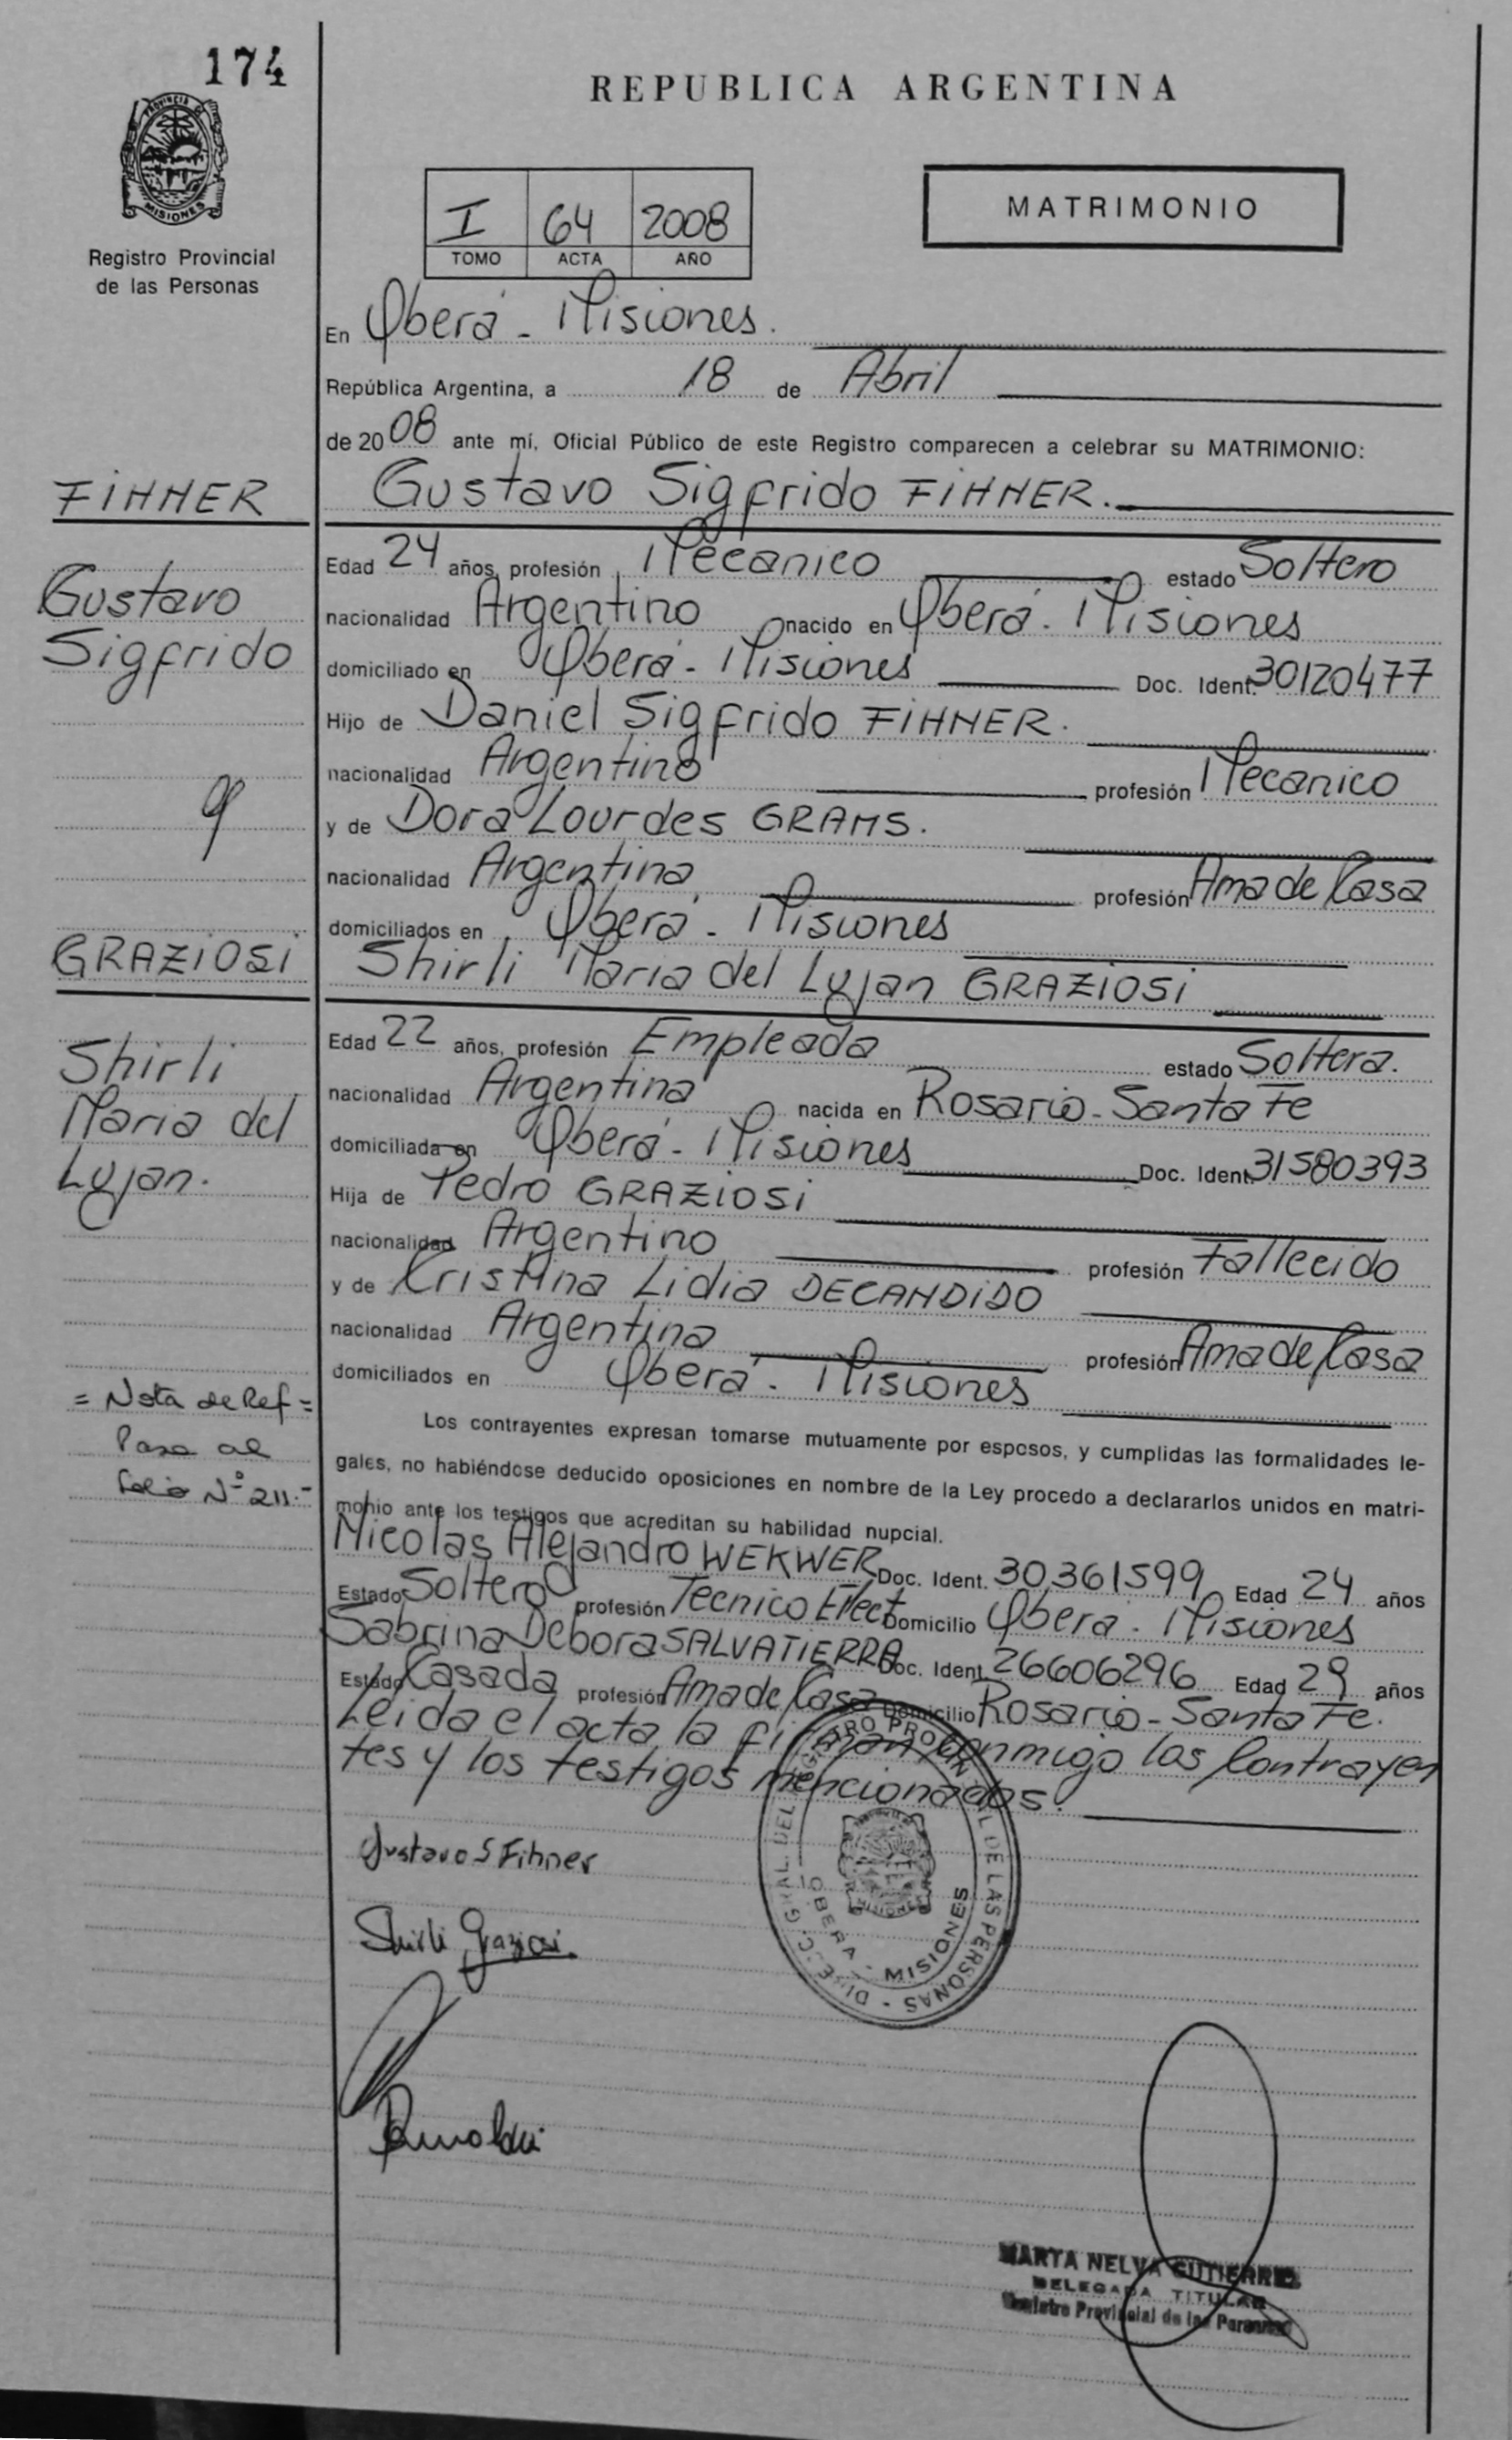 174
REPUBLICA ARGENTINA
PROVINCIA DE
MISIONES
Registro Provincial
de las Personas
I 64 2008
TOMO ACTA AÑO
MATRIMONIO
En Oberá - Misiones.
República Argentina, a 18 de Abril
de 2008 ante mí, Oficial Público de este Registro comparecen a celebrar su MATRIMONIO:
FIHNER
Gustavo Sigfrido FIHNER.
Gustavo
Sigfrido
Edad 24 años, profesión Mecanico estado Soltero
nacionalidad Argentino nacido en Oberá - Misiones
domiciliado en Oberá - Misiones Doc. Ident. 30120477
Hijo de Daniel Sigfrido FIHNER.
nacionalidad Argentino profesión Mecanico
y
y de Dora Lourdes GRAMS.
nacionalidad Argentina profesión Ama de Casa
domiciliados en Oberá - Misiones
GRAZIOSI
Shirli Maria del Lujan GRAZIOSI
Shirli
Maria del
Lujan.
Edad 22 años, profesión Empleada estado Soltera.
nacionalidad Argentina nacida en Rosario - Santa Fe
domiciliada en Oberá - Misiones Doc. Ident. 31580393
Hija de Pedro GRAZIOSI
nacionalidad Argentino profesión Fallecido
y de Cristina Lidia DECANDIDO
nacionalidad Argentina profesión Ama de Casa
domiciliados en Oberá - Misiones
= Nota de Ref =
Pasa al
Folio N° 211.-
Los contrayentes expresan tomarse mutuamente por esposos, y cumplidas las formalidades le-
gales, no habiéndose deducido oposiciones en nombre de la Ley procedo a declararlos unidos en matri-
monio ante los testigos que acreditan su habilidad nupcial.
Nicolas Alejandro WEKWER Doc. Ident. 30.361599 Edad 24 años
Estado Soltero profesión Tecnico Elect Domicilio Oberá - Misiones
Sabrina Debora SALVATIERRA Doc. Ident. 26606296 Edad 29 años
Estado Casada profesión Ama de Casa Domicilio Rosario - Santa Fe.
Leida el acta la firman conmigo los Contrayen
tes y los testigos mencionados.
Gustavo S Fihner
Shirli Graziosi
DIREC. GRAL. DEL REGISTRO PROVINCIAL DE LAS PERSONAS -
OBERA - MISIONES
MISIONES
MARTA NELVA GUTIERREZ
DELEGADA TITULAR
Registro Provincial de las Personas